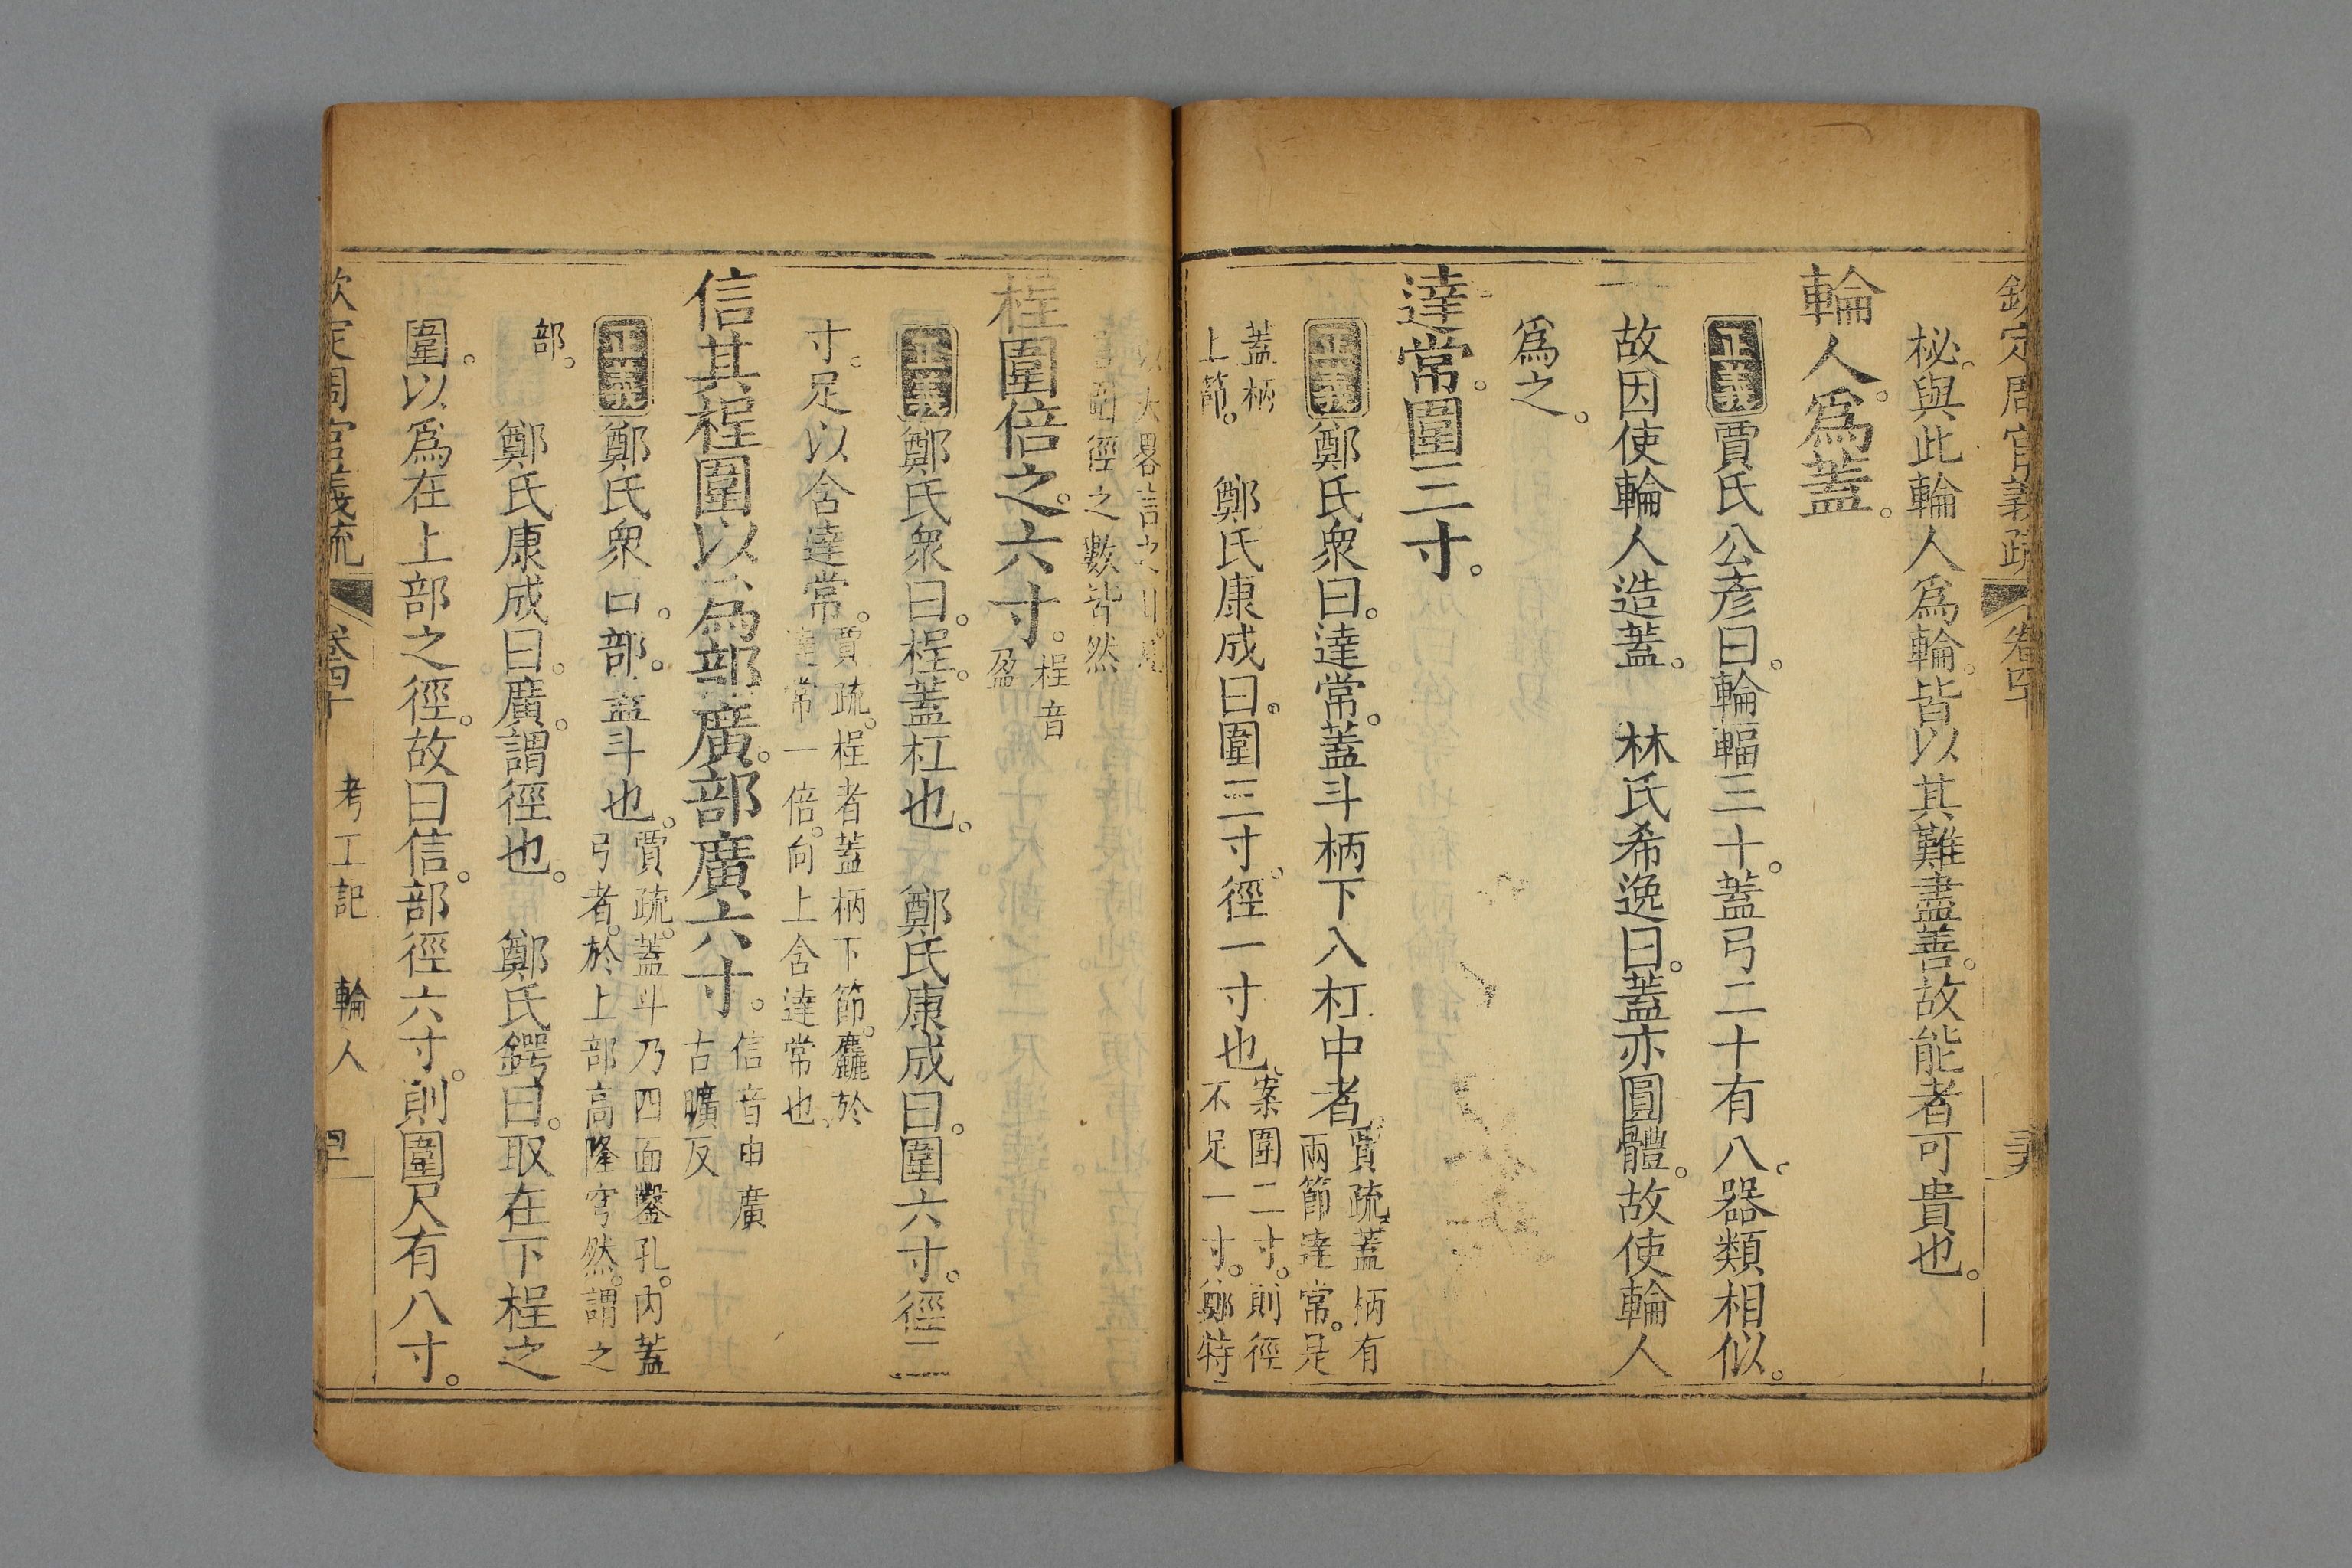 欽定周官義疏 卷四十
秘。與此輪人爲輪。皆以其難盡善。故能者可貴也。
輪人爲蓋。
正義賈氏公彥曰。輪輻三十。蓋弓二十有八。器類相似。
故因使輪人造蓋。 林氏希逸曰。蓋亦圓體。故使輪人
爲之。
達常。圍三寸。
正義鄭氏衆曰。達常。蓋斗柄下入杠中者。賈疏。蓋柄有
兩節。達常。是
蓋柄
上節。 鄭氏康成曰。圍三寸。徑一寸也。案圍二寸。則徑
不足一寸。鄭特
以大畧言之耳。
言圍徑之數皆然
桯圍倍之。六寸。桯音
盈
正義鄭氏衆曰。桯。蓋杠也。 鄭氏康成曰。圍六寸。徑二
寸。足以含達常。賈疏。桯者蓋柄下節。麤於
達常一倍。向上含達常也。
信其桯圍以爲部廣。部廣六寸。信音申廣
古曠反
正義鄭氏衆曰。部。蓋斗也。賈疏。蓋斗乃四面鑿孔。內蓋
弓者。於上部高隆穹然。謂之
部。
鄭氏康成曰。廣。謂徑也。 鄭氏鍔曰。取在下桯之
圍。以爲在上部之徑。故曰信。部徑六寸。則圍尺有八寸。
欽定周官義疏 卷四十 考工記 輪人